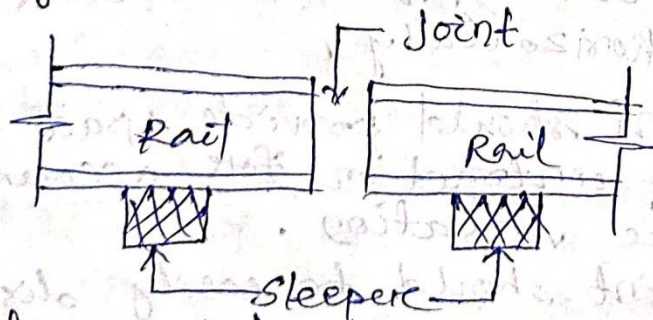 Joint
Rail Rail
Sleepere